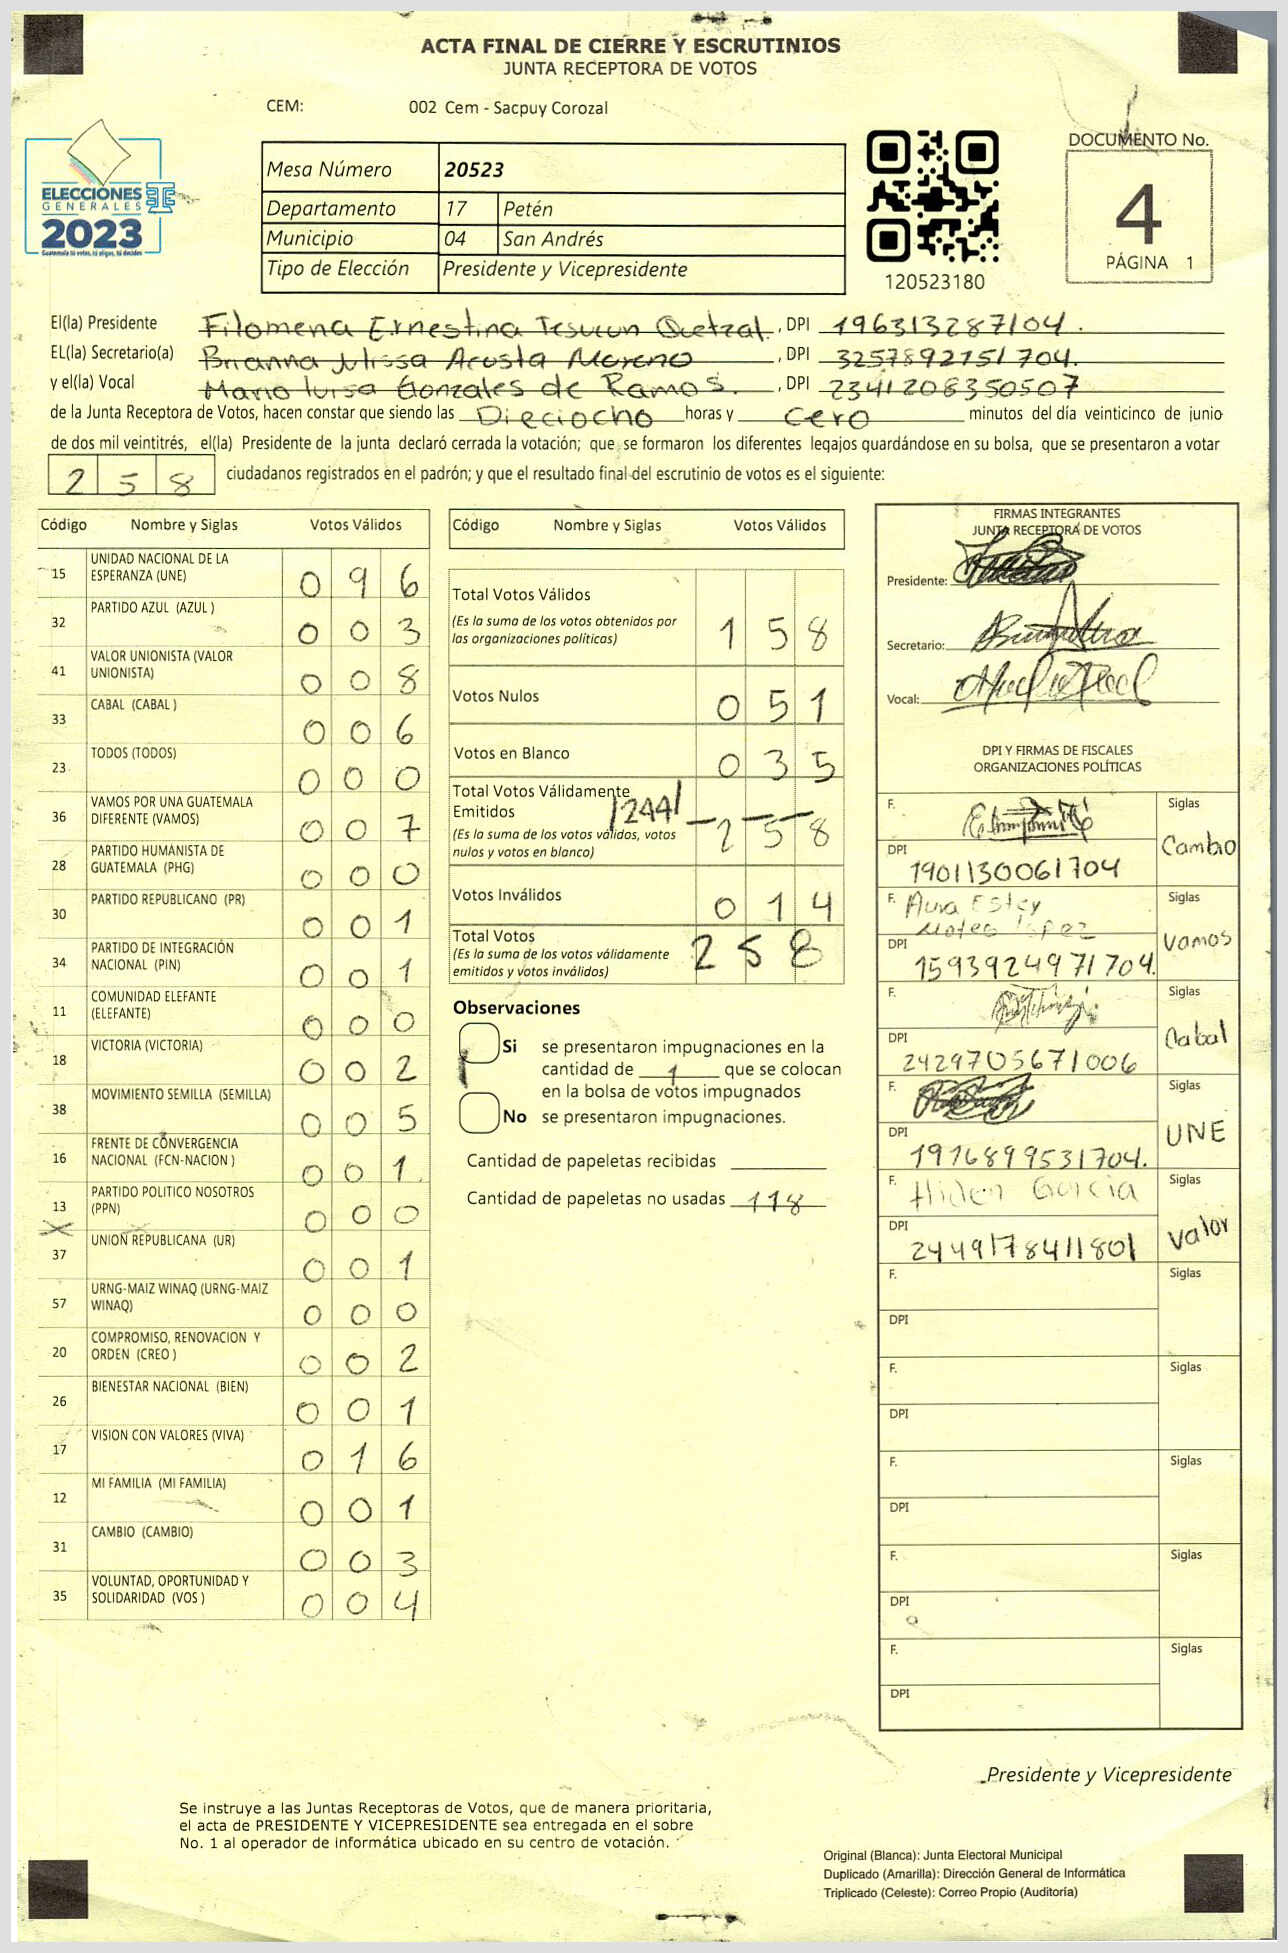 ACTA FINAL DE CIERRE Y ESCRUTINIOS
JUNTA RECEPTORA DE VOTOS
CEM: 002 Cem - Sacpuy Corozal
ELECCIONES
GENERALES
2023
Guatemala tú votas, tú eliges, tú decides
Mesa Número 20523
Departamento 17 Petén
Municipio 04 San Andrés
Tipo de Elección Presidente y Vicepresidente
120523180
DOCUMENTO No.
4
PÁGINA 1
El(la) Presidente Filomena Ernestina Tesucun Quetzal, DPI 196313287104.
EL(la) Secretario(a) Brianna Julissa Acosta Moreno, DPI 3257892751704.
y el(la) Vocal Maria luisa Gonzales de Ramos., DPI 2341208350507
de la Junta Receptora de Votos, hacen constar que siendo las Dieciocho horas y cero minutos del día veinticinco de junio
de dos mil veintitrés, el(la) Presidente de la junta declaró cerrada la votación; que se formaron los diferentes legajos guardándose en su bolsa, que se presentaron a votar
258 ciudadanos registrados en el padrón; y que el resultado final del escrutinio de votos es el siguiente:
Código Nombre y Siglas Votos Válidos
15 UNIDAD NACIONAL DE LA
ESPERANZA (UNE) 0 9 6
32 PARTIDO AZUL (AZUL ) 0 0 3
41 VALOR UNIONISTA (VALOR
UNIONISTA) 0 0 8
33 CABAL (CABAL ) 0 0 6
23 TODOS (TODOS) 0 0 0
36 VAMOS POR UNA GUATEMALA
DIFERENTE (VAMOS) 0 0 7
28 PARTIDO HUMANISTA DE
GUATEMALA (PHG) 0 0 0
30 PARTIDO REPUBLICANO (PR) 0 0 1
34 PARTIDO DE INTEGRACIÓN
NACIONAL (PIN) 0 0 1
11 COMUNIDAD ELEFANTE
(ELEFANTE) 0 0 0
18 VICTORIA (VICTORIA) 0 0 2
38 MOVIMIENTO SEMILLA (SEMILLA) 0 0 5
16 FRENTE DE CONVERGENCIA
NACIONAL (FCN-NACION ) 0 0 1.
13 PARTIDO POLITICO NOSOTROS
(PPN) 0 0 0
37 UNION REPUBLICANA (UR) 0 0 1
57 URNG-MAIZ WINAQ (URNG-MAIZ
WINAQ) 0 0 0
20 COMPROMISO, RENOVACION Y
ORDEN (CREO ) 0 0 2
26 BIENESTAR NACIONAL (BIEN) 0 0 1
17 VISION CON VALORES (VIVA) 0 1 6
12 MI FAMILIA (MI FAMILIA) 0 0 1
31 CAMBIO (CAMBIO) 0 0 3
35 VOLUNTAD, OPORTUNIDAD Y
SOLIDARIDAD (VOS ) 0 0 4
Código Nombre y Siglas Votos Válidos
Total Votos Válidos
(Es la suma de los votos obtenidos por
las organizaciones políticas) 1 5 8
Votos Nulos 0 5 1
Votos en Blanco 0 3 5
Total Votos Válidamente
Emitidos 244
(Es la suma de los votos válidos, votos
nulos y votos en blanco) 2 5 8
Votos Inválidos 0 1 4
Total Votos
(Es la suma de los votos válidamente
emitidos y votos inválidos) 2 5 8
Observaciones
Si se presentaron impugnaciones en la
cantidad de 1 que se colocan
en la bolsa de votos impugnados
No se presentaron impugnaciones.
Cantidad de papeletas recibidas
Cantidad de papeletas no usadas 118
FIRMAS INTEGRANTES
JUNTA RECEPTORA DE VOTOS
Presidente:
Secretario:
Vocal:
DPI Y FIRMAS DE FISCALES
ORGANIZACIONES POLÍTICAS
F. Siglas
Cambio
DPI
1901130061704
F. Aura Estey Siglas
Mateo lopez
Vamos
DPI
1593924971704.
F. Siglas
Cabal
DPI
2429705671006
F. Siglas
UNE
DPI
1976899531704.
F. Hiden Garcia Siglas
Valor
DPI
2449178411801
F. Siglas
DPI
F. Siglas
DPI
F. Siglas
DPI
F. Siglas
DPI
F. Siglas
DPI
Presidente y Vicepresidente
Se instruye a las Juntas Receptoras de Votos, que de manera prioritaria,
el acta de PRESIDENTE Y VICEPRESIDENTE sea entregada en el sobre
No. 1 al operador de informática ubicado en su centro de votación.
Original (Blanca): Junta Electoral Municipal
Duplicado (Amarilla): Dirección General de Informática
Triplicado (Celeste): Correo Propio (Auditoría)